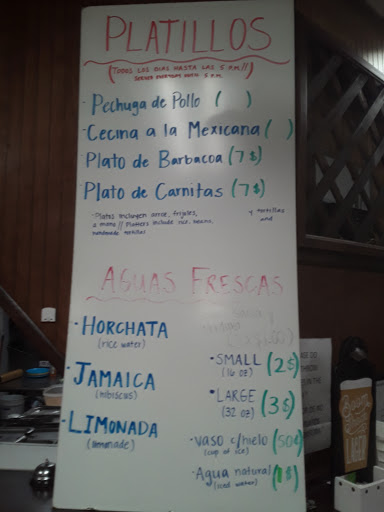 PLATILLOS
(TODOS LOS DIAS HASTA LAS 5 P.M. //
5 P.M.
- Pechuga de Pollo ( )
- Cecina a la Mexicana ( )
- Plato de Barbacoa (7$)
- Plato de Carnitas (7$)
- Platos incluyen arroz, frijoles, y tortillas
a mano // Platters include rice, beans, and
handmade tortillas
AGUAS FRESCAS
- HORCHATA
(rice water)
- JAMAICA
(hibiscus)
- LIMONADA
(lemonade)
• SMALL (2$)
(16 oz)
• LARGE (3$)
(32 oz)
- Vaso c/hielo (50¢)
(cup of ice)
- Agua natural (1$)
(iced water)